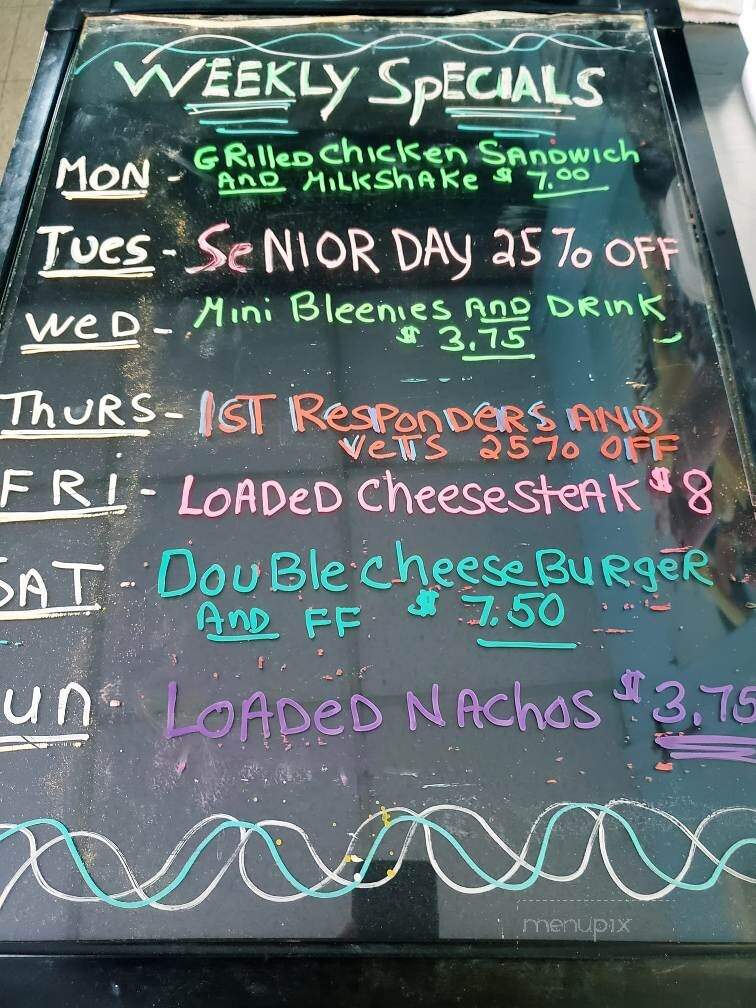 WEEKLY SPECIALS
MON - GRilleD Chicken SANDwich
AnD MiLKShAKe $ 7.00
Tues - SeNIOR DAY 25% OFF
WeD - Mini Bleenies AnD DRinK
$ 3.75
ThURS - 1ST ResPonDeRS AND
VeTS 25% OFF
FRi - LOADeD CheesesteAK $8
SAT - DouBle cheeseBuRgeR
AnD FF $ 7.50
un - LOADeD NAchos $3.75
menupix